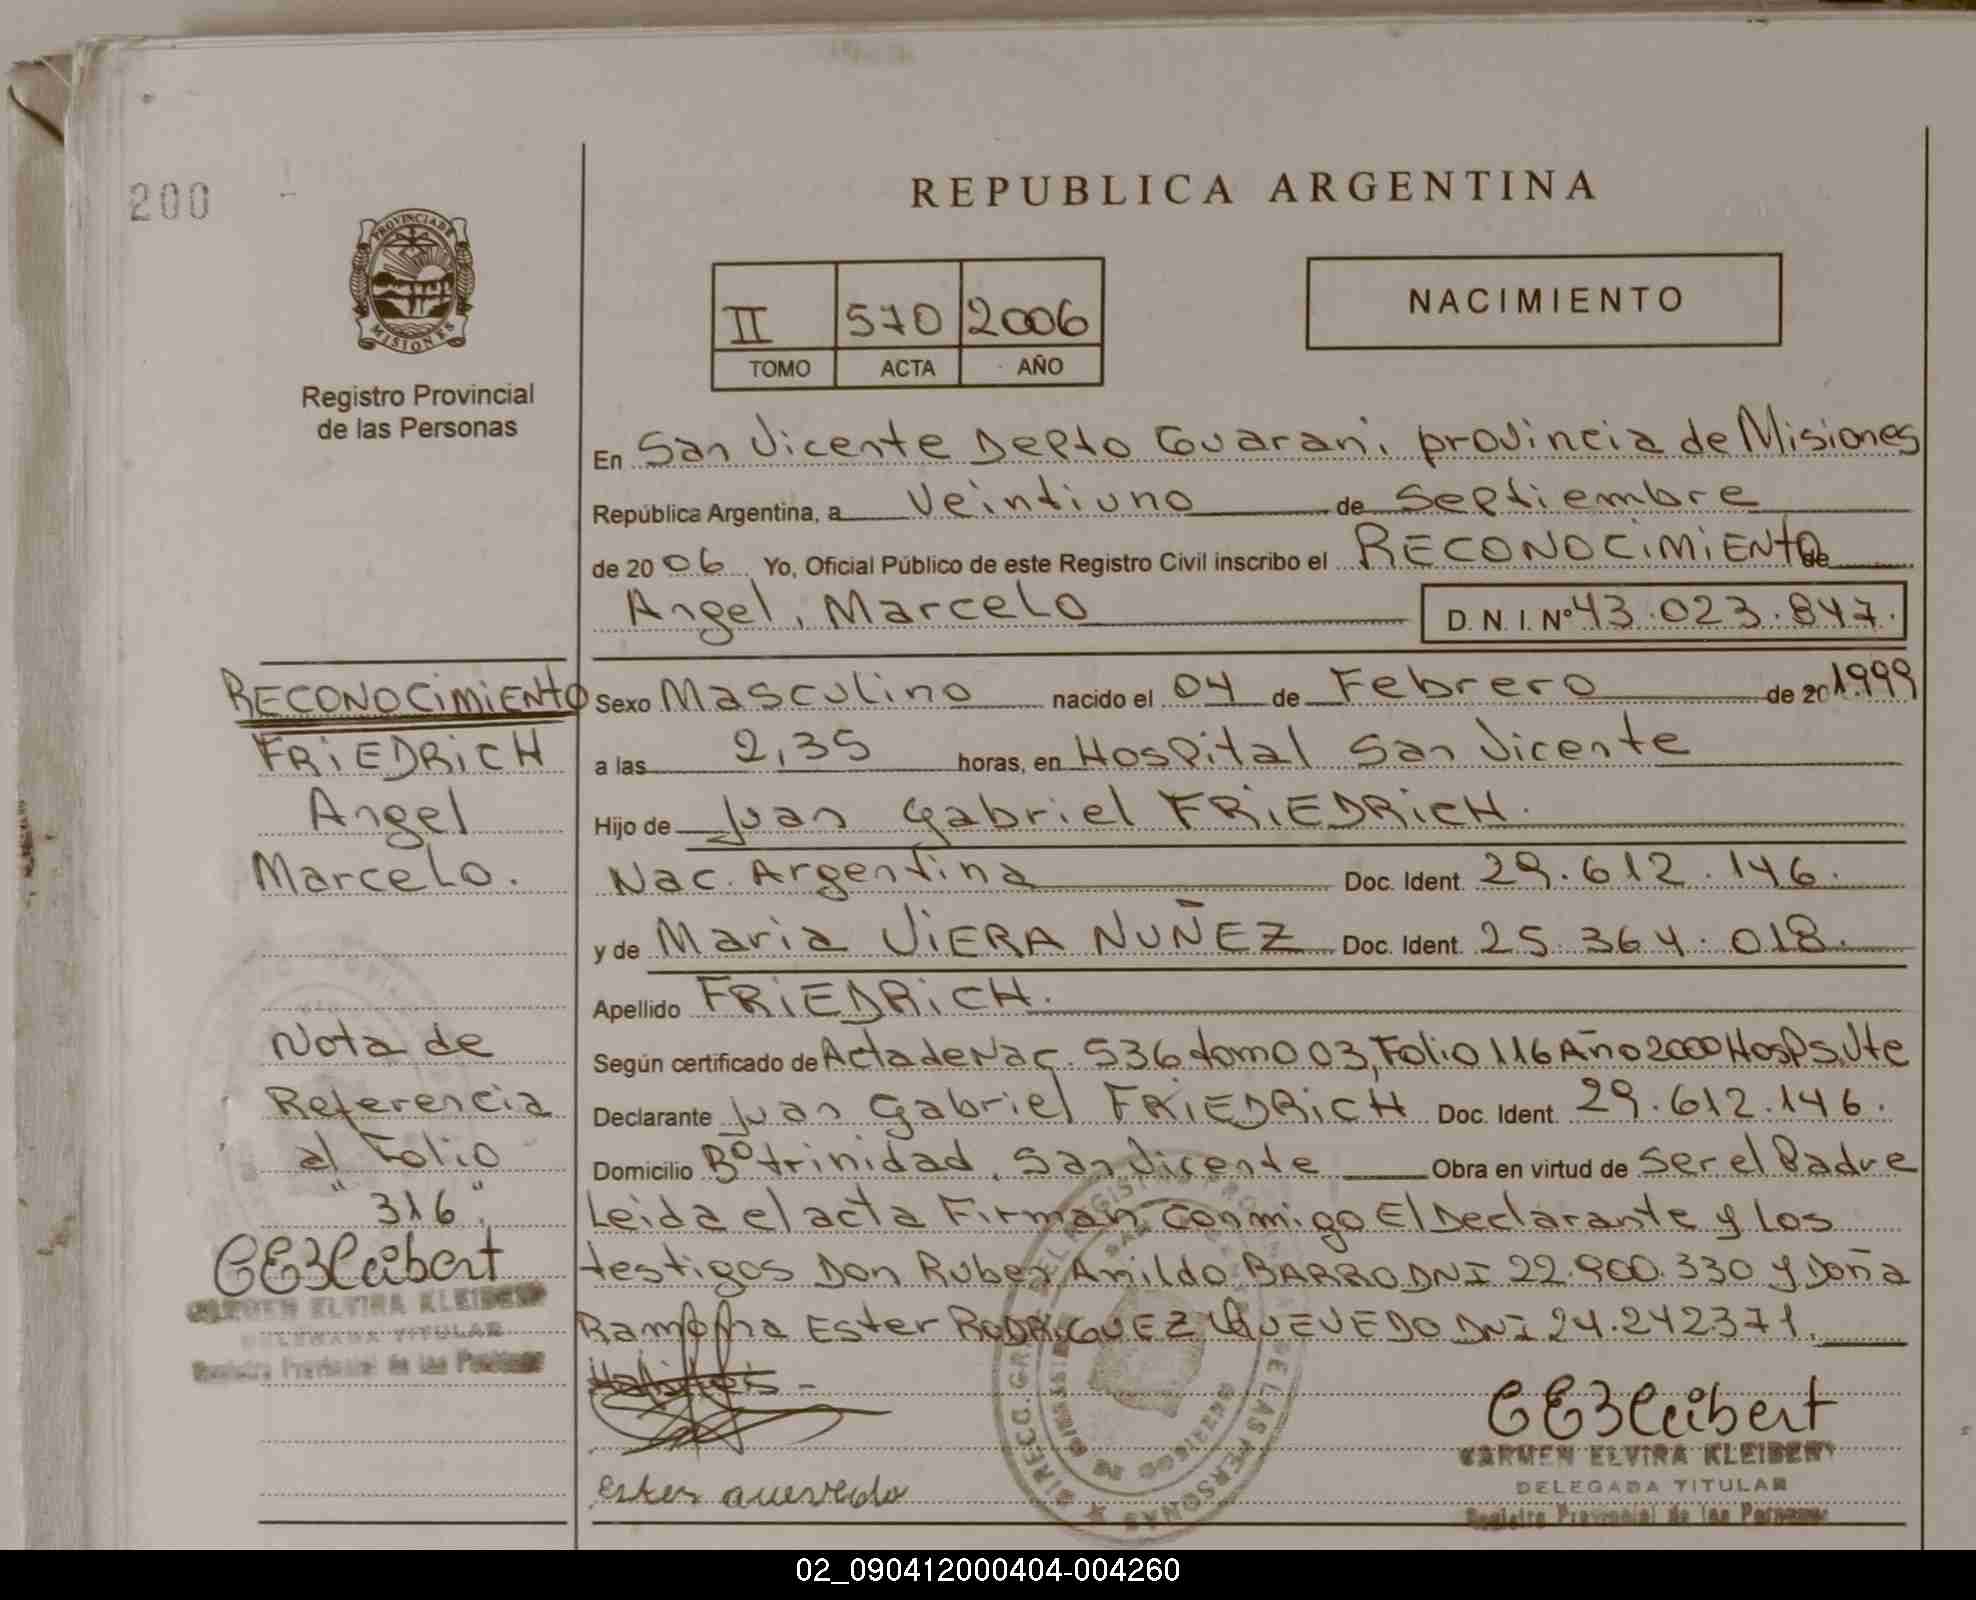 200
PROVINCIA DE
MISIONES
Registro Provincial
de las Personas
REPUBLICA ARGENTINA
II 570 2006
TOMO ACTA AÑO
NACIMIENTO
En San Vicente Depto Guarani provincia de Misiones
República Argentina, a Veintiuno de Septiembre
de 20 06 Yo, Oficial Público de este Registro Civil inscribo el RECONOCIMIENTO de
Angel, Marcelo D. N. I. Nº 43.023.847.
Sexo Masculino nacido el 04 de Febrero de 20 1999
a las 2,35 horas, en Hospital San Vicente
Hijo de Juan Gabriel FRIEDRICH.
Nac. Argentina Doc. Ident. 29.612.146.
y de Maria VIERA NUÑEZ Doc. Ident. 25.364.018.
Apellido FRIEDRICH.
Según certificado de Acta de Nac. 536 tomo 03, Folio 116 Año 2000 Hosp S. Vte
Declarante Juan Gabriel FRIEDRICH Doc. Ident. 29.612.146.
Domicilio Bº trinidad, San Vicente Obra en virtud de ser el Padre
Leida el acta Firman Conmigo El Declarante y Los
testigos Don Ruben Anildo BARRO DNI 22.900.330 y Doña
Ramona Ester RODRIGUEZ QUEVEDO DNI 24.242371.
Ester quevedo
CEKleibert
CARMEN ELVIRA KLEIBERT
DELEGADA TITULAR
Registro Provincial de las Personas
RECONOCIMIENTO
FRIEDRICH
Angel
Marcelo.
Nota de
Referencia
al Folio
"316".
CEKleibert
CARMEN ELVIRA KLEIBERT
DELEGADA TITULAR
Registro Provincial de las Personas
02_090412000404-004260